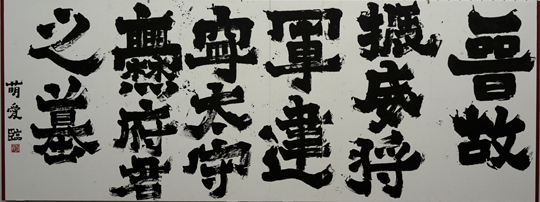 晉故
振威将
軍建
寧太守
爨府君
之墓
萌愛臨